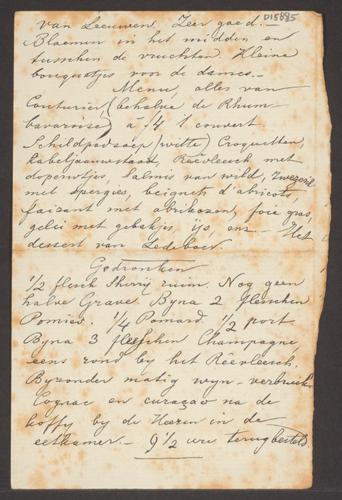 D15885
van Leeuwen. Zeer goed.
Bloemen in het midden en
tusschen de vruchten. Kleine
bouquetjes voor de dames.
Menu, alles van
Couturier (behalve de Rhum-
bavaroise) à ƒ4 't couvert
Schildpadsoep (witte) Croquetten,
Kabeljauwstaart, Reevleesch met
doperwtjes, Salmis van wild, Zwezerik
met Sperges, beignets d'abricots,
faisant met abrikozen, foie gras,
gelei met gebakjes, ijs, enz. — Het
dessert van Ledeboer.
Gedronken
1/2 flesch Sherry ruim. Nog geen
halve Grave. Byna 2 flesschen
Pomies. 1/4 Pomard. 1/2 port
Byna 3 flesschen Champagne,
eens rond by het Reevleesch.
Byzonder matig wyn verbruik.
Cognac en curaçao na de
koffy by de Heeren in de
eetkamer. — 9 1/2 ure terugbesteld.